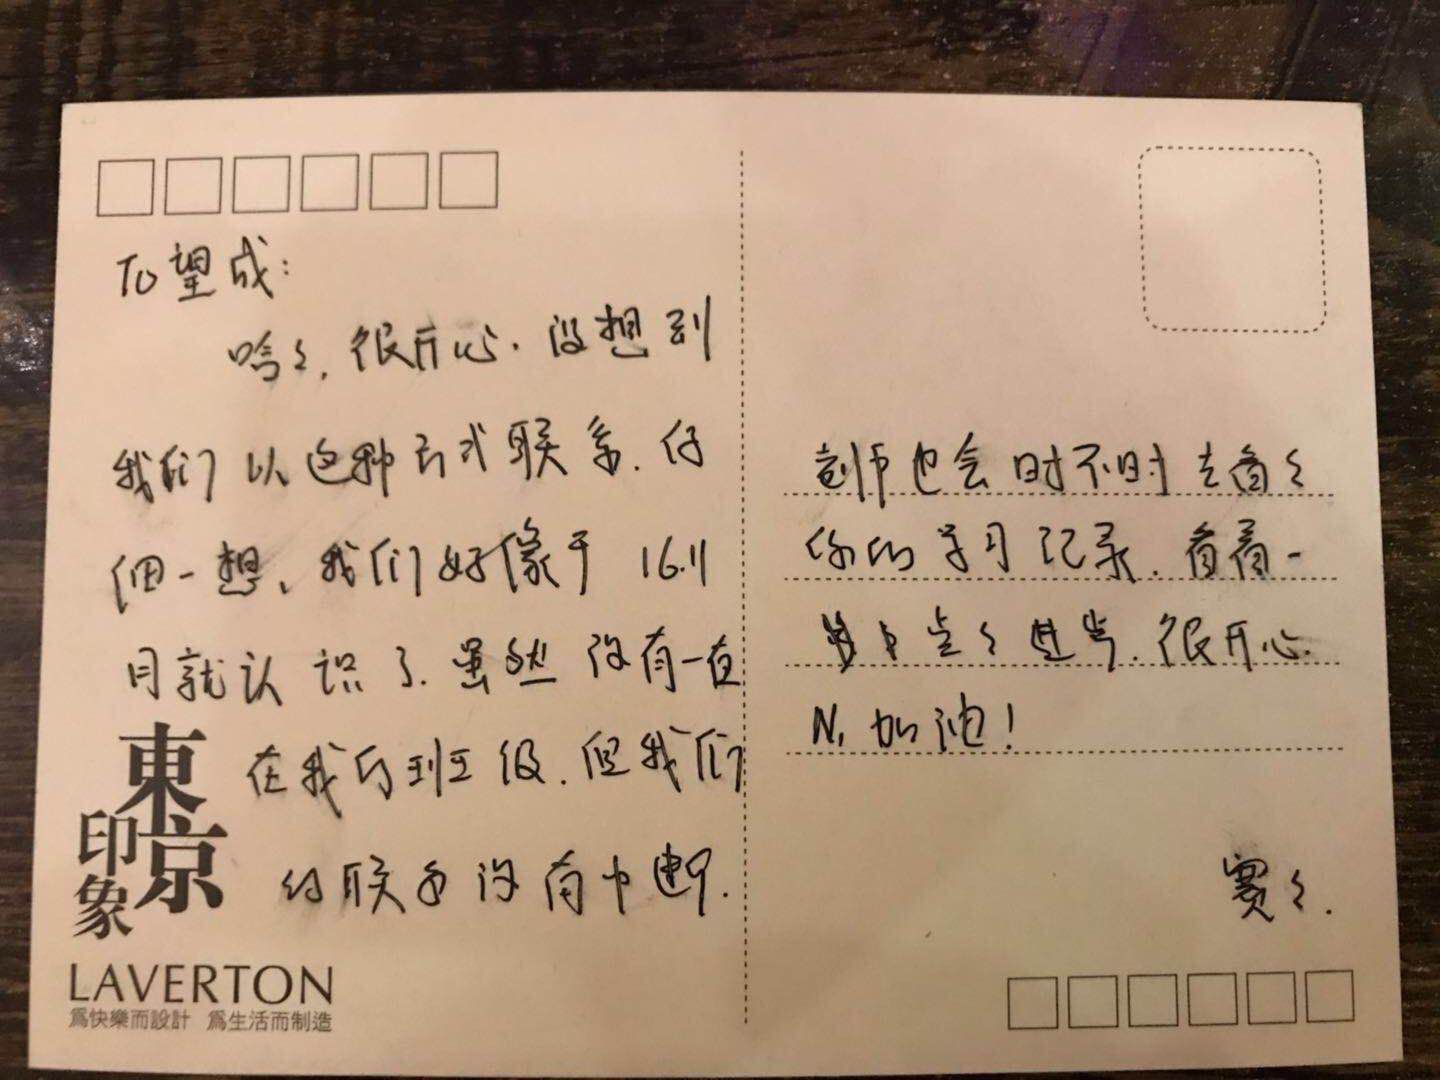 To望成:
哈々,很开心.没想到
我们以这种方式联系.仔
细一想,我们好像于16.11
月就认识了.虽然没有一直
在我的班级.但我们
的联系没有中断.
東京
印象
LAVERTON
爲快樂而設計 爲生活而制造
也会时不时去看々
你的学习记录.看着一
点々进步.很开心.
N1加油!
赛々.